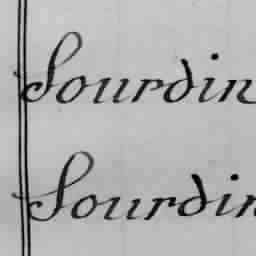 Sourdin
Sourdin